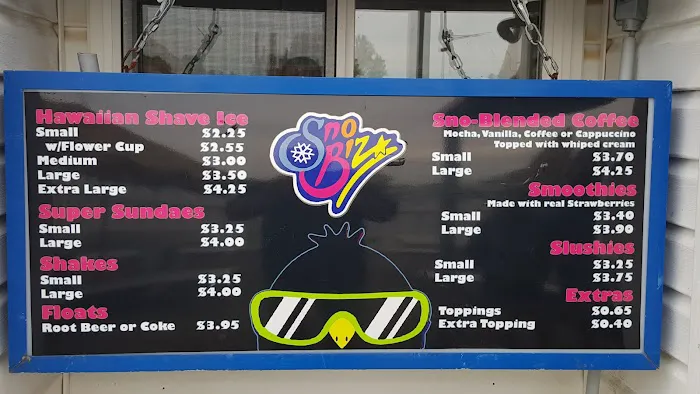 Hawaiian Shave Ice
Small $2.25
w/Flower Cup $2.55
Medium $3.00
Large $3.50
Extra Large $4.25
Super Sundaes
Small $3.25
Large $4.00
Shakes
Small $3.25
Large $4.00
Floats
Root Beer or Coke $3.95
Sno
Biz
Sno-Blended Coffee
Mocha, Vanilla, Coffee or Cappuccino
Topped with whiped cream
Small $3.70
Large $4.25
Smoothies
Made with real Strawberries
Small $3.40
Large $3.90
Slushies
Small $3.25
Large $3.75
Extras
Toppings $0.65
Extra Topping $0.40